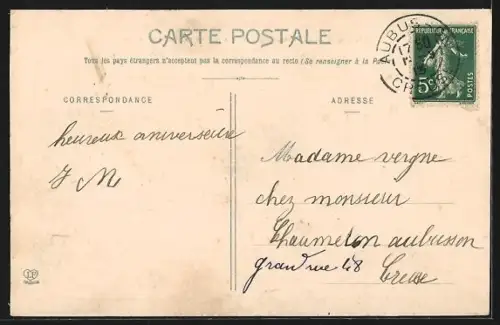 CARTE POSTALE
Tous les pays étrangers n'acceptent pas la correspondance au recto (Se renseigner à la Poste)
CORRESPONDANCE
ADRESSE
RÉPUBLIQUE FRANÇAISE
5c
POSTES
AUBUS
heureux aniverseire
J M
Madame vergne
chez monsieur
Chaumeton aubusson
grand rue 48
Creuse